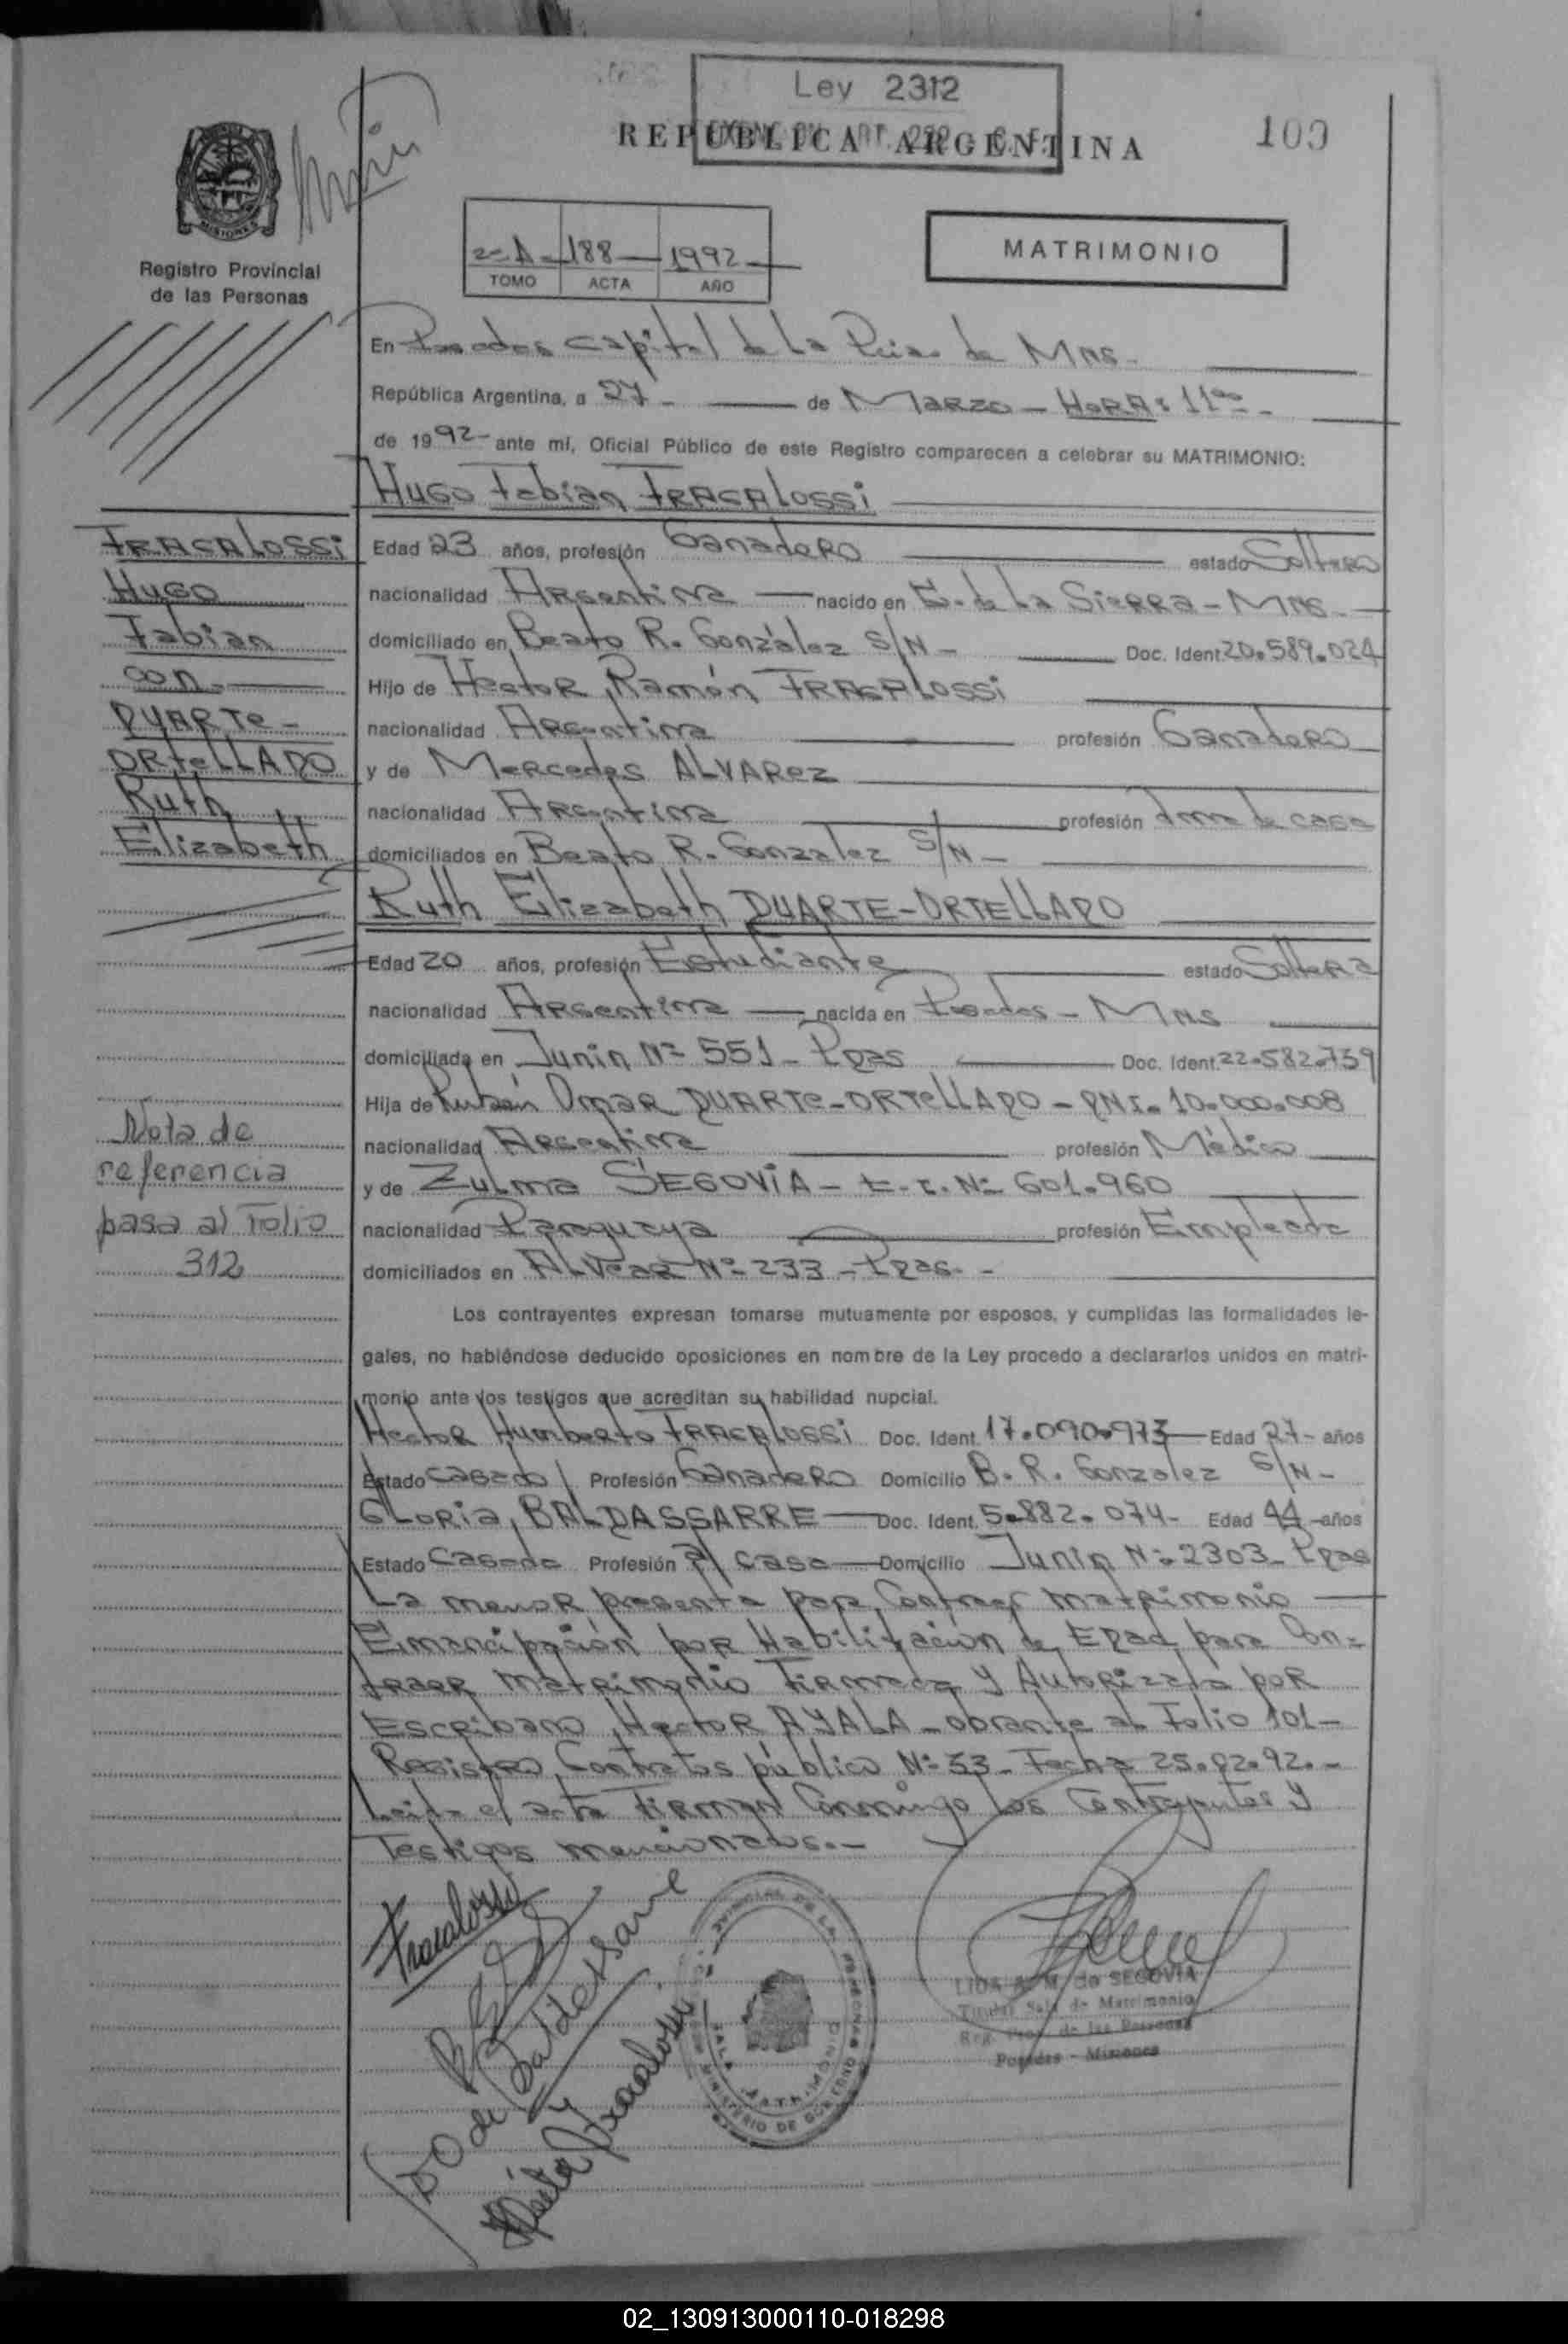 Ley 2312
REPUBLICA ARGENTINA
109
MISIONES
Registro Provincial
de las Personas
2=A- 188- 1992-
TOMO ACTA AÑO
MATRIMONIO
En Posadas Capital de La Pcia. de Mns.-
República Argentina, a 27- de Marzo - HORA: 11
de 1992- ante mí, Oficial Público de este Registro comparecen a celebrar su MATRIMONIO:
Hugo Fabian FRACALOSSI
FRACALOSSI
Hugo
Fabian
con.-
DUARTE-
ORTELLADO
Ruth
Elizabeth
Edad 23 años, profesión Ganadero estado Soltero
nacionalidad Argentina nacido en E. de La Sierra - Mns.-
domiciliado en Beato R. González S/N - Doc. Ident. 20.589.024
Hijo de Hector Ramón FRACALOSSI
nacionalidad Argentina profesión Ganadero
y de Mercedes ALVAREZ
nacionalidad Argentina profesión Ama de casa
domiciliados en Beato R. Gonzalez S/N -
Ruth Elizabeth DUARTE-ORTELLADO
Edad 20 años, profesión Estudiante estado Soltera
nacionalidad Argentina nacida en Posadas - Mns
domiciliada en Junin Nº 551 - Pdas Doc. Ident. 22.582.739
Hija de Rubén Omar DUARTE-ORTELLADO - DNI. 10.000.008
nacionalidad Argentina profesión Médico
y de Zulma SEGOVIA - C.I. Nº 601.960
nacionalidad Paraguaya profesión Empleada
domiciliados en ALVEAR Nº 233 - Pdas. -
Nota de
referencia
pasa al Folio
312
Los contrayentes expresan tomarse mutuamente por esposos, y cumplidas las formalidades le-
gales, no habiéndose deducido oposiciones en nombre de la Ley procedo a declararlos unidos en matri-
monio ante los testigos que acreditan su habilidad nupcial.
Hector Humberto FRACALOSSI Doc. Ident. 17.090.973 Edad 27- años
Estado Casado Profesión Ganadero Domicilio B. R. Gonzalez S/N -
GLORIA, BALDASSARRE Doc. Ident. 5.882.074- Edad 44 años
Estado Casada Profesión Casa Domicilio Junin Nº 2303- Pdas
La menor presenta para Contraer matrimonio
Emancipación por Habilitación de Edad para Con-
traer matrimonio Firmada y Autorizada por
Escribano, Hector AYALA - obrante al Folio 101-
Registro Contratos público Nº 53 - Fecha 25.02.92.-
Leida el acta Firman Conmigo Los Contrayentes y
Testigos mencionados.-
Fracalossi
Baldessarre
LIDA de SEGOVIA
Titular Sala de Matrimonio
Reg. Prov. de las Personas
Posadas - Misiones
02_130913000110-018298